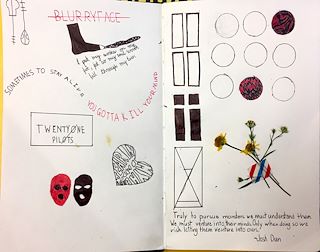 BLURRYFACE
I put my
my
through my
SOMETIMES TO STAY ALIVE
YOU GOTTA KILL YOUR MIND
TWENTYØNE
PILOTS
Truly to pursue monsters we must understand them.
We must venture into their minds. Only when doing so we
risk letting them venture into ours.
-Josh Dun